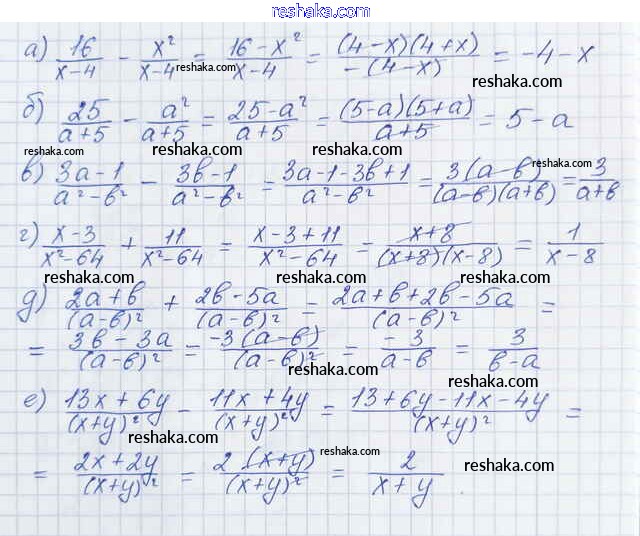 reshaka.com
а) 16/(x-4) - x²/(x-4) = (16-x²)/(x-4) = (4-x)(4+x)/-(4-x) = -4-x
reshaka.com reshaka.com reshaka.com
б) 25/(a+5) - a²/(a+5) = (25-a²)/(a+5) = (5-a)(5+a)/(a+5) = 5-a
reshaka.com reshaka.com reshaka.com
в) (3a-1)/(a²-b²) - (3b-1)/(a²-b²) = (3a-1-3b+1)/(a²-b²) = 3(a-b)/(a-b)(a+b) = 3/(a+b)
reshaka.com reshaka.com
г) (x-3)/(x²-64) + 11/(x²-64) = (x-3+11)/(x²-64) = (x+8)/(x+8)(x-8) = 1/(x-8)
reshaka.com reshaka.com reshaka.com
д) (2a+b)/(a-b)² + (2b-5a)/(a-b)² = (2a+b+2b-5a)/(a-b)² =
= (3b-3a)/(a-b)² = -3(a-b)/(a-b)² = -3/(a-b) = 3/(b-a)
reshaka.com reshaka.com reshaka.com
е) (13x+6y)/(x+y)² - (11x+4y)/(x+y)² = (13+6y-11x-4y)/(x+y)² =
reshaka.com reshaka.com reshaka.com
= (2x+2y)/(x+y)² = 2(x+y)/(x+y)² = 2/(x+y)
reshaka.com
reshaka.com